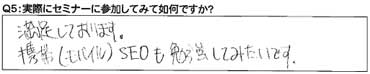 Q5:実際にセミナーに参加してみて如何ですか?
満足しております。
携帯(モバイル)SEOも勉強してみたいです。